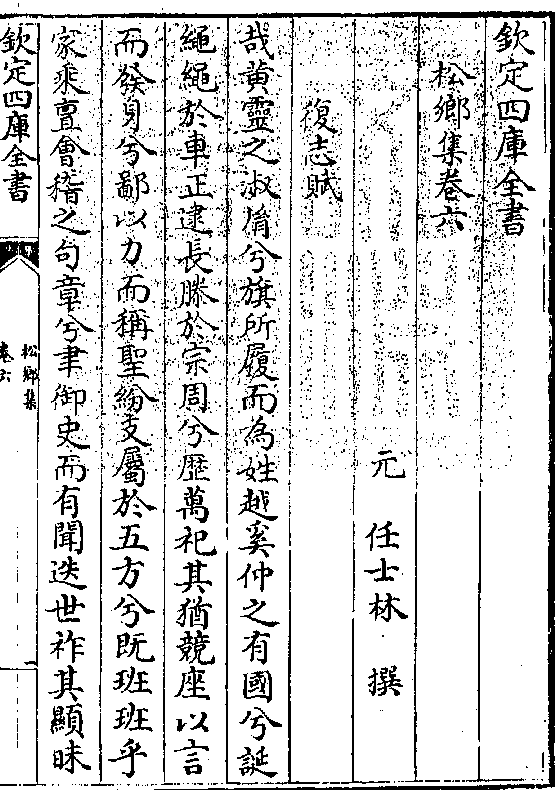 欽定四庫全書
松鄉集卷六
元 任士林 撰
復志賦
哉黄靈之淑胤兮旗所履而為姓越奚仲之有國兮誕
繩繩於車正逮長滕於宗周兮歴萬祀其猶競座以言
而發身兮鄙以力而稱聖紛支屬於五方兮既班班乎
家乘亶會稽之句章兮聿御史而有聞迭世祚其顯昧
欽定四庫全書
松鄉集
卷六
一